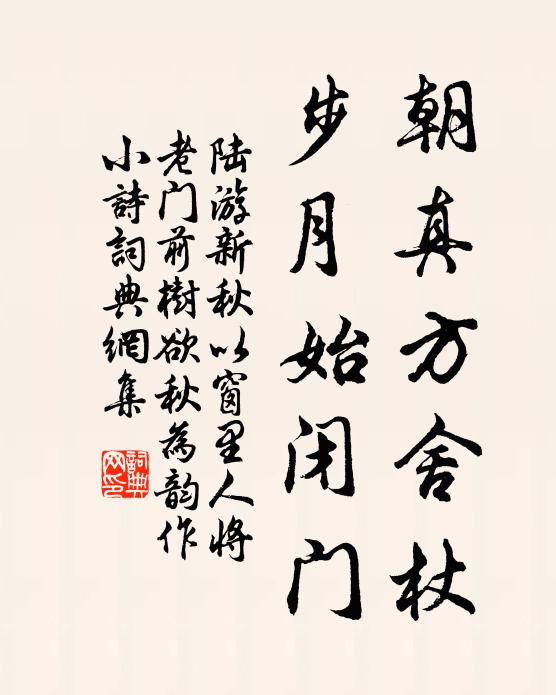 朝真方舍杖
步月始闭门
陆游新秋以窗里人将
老门前樹欲秋為韵作
小詩詞典網集
詞典
网印